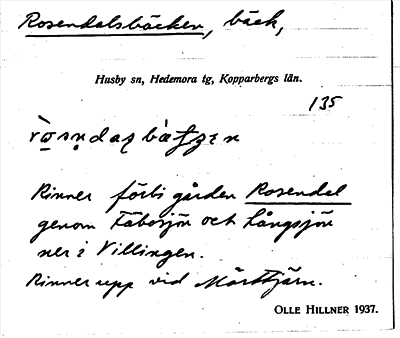 Rosendalsbäcken, bäck,
Husby sn, Hedemora tg, Kopparbergs län.
135
Rinner förbi gården Rosendal
genom Fäbosjön och Långsjön
ner i Villingen.
Rinner upp vid Mörttjärn.
OLLE HILLNER 1937.